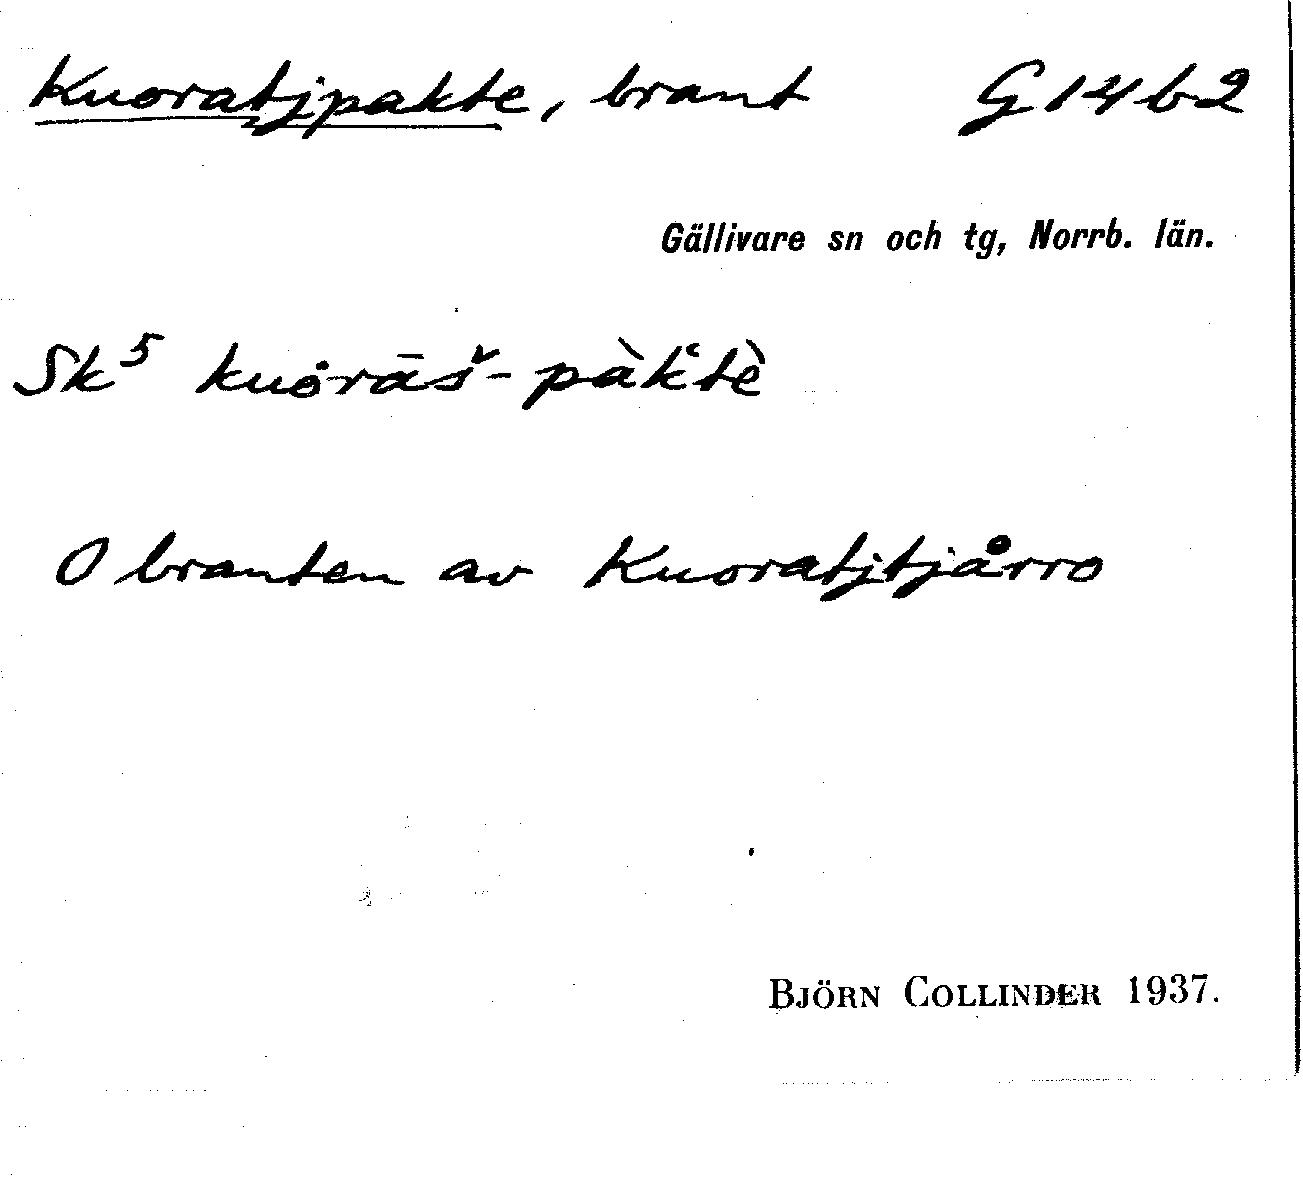 Kuoratjpakte, brant G14b2
Gällivare sn och tg, Norrb. län.
Sk⁵ kuȯrāš-pàk‘tè
O branten av Kuoratjtjårro
BJÖRN COLLINDER 1937.